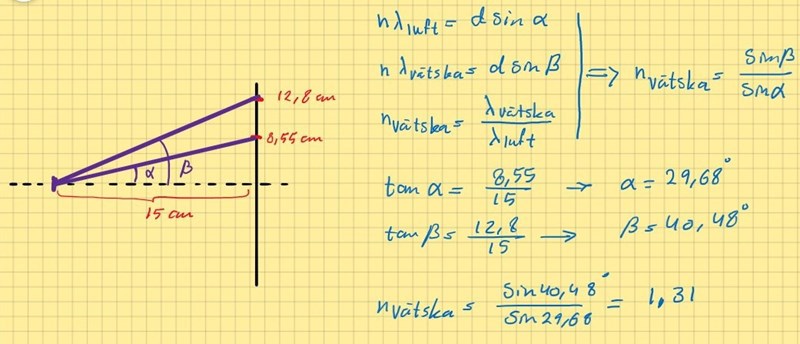 12,8 cm
8,55 cm
α β
15 cm
nλluft = d sin α
nλvätska = d sin β
nvätska = λvätska / λluft
=> nvätska = sinβ / sinα
tan α = 8,55 / 15 → α = 29,68°
tan β = 12,8 / 15 → β = 40,48°
nvätska = sin 40,48° / sin 29,68 = 1,31